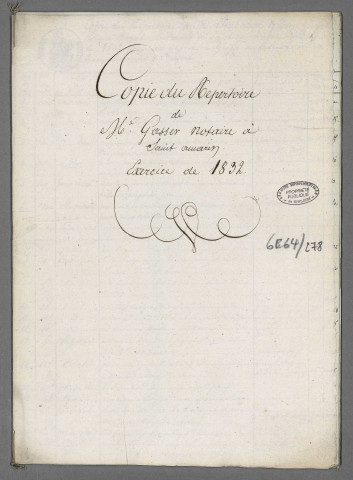 Copie du Répertoire
de
Me Gasser Notaire à
Saint amarin
Exercice de 1832
PROPRIÉTÉ
PUBLIQUE
6E64/278